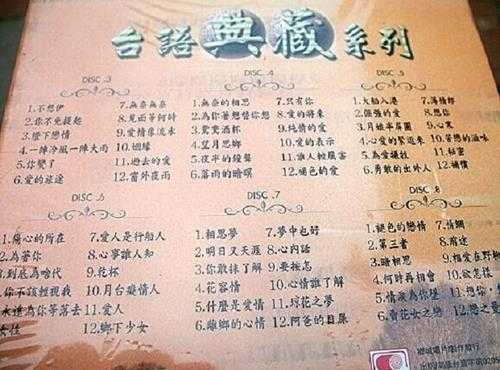 台語典藏系列
DISC .3
1.不想伊 7.無奈無奈
2.你不免提起 8.見面等何時
3.燈下戀情 9.愛情像流水
4.一陣冷風一陣大雨 10.姻緣
5.你變了 11.過去的愛
6.愛的旅途 12.窗外夜雨
DISC .4
1.無奈的相思 7.只有你
2.為你著想替你想 8.愛的將來
3.鴛鴦酒杯 9.純情的愛
4.望月思鄉 10.愛的表示
5.夜半的鐘聲 11.誰人較厲害
6.落雨的暗暝 12.褪色的愛
DISC .5
1.大船入港 7.薄情郎
2.倔強的愛 8.想你
3.月娘半屏圓 9.心寒
4.心愛的緊返來 10.苦戀的滋味
5.為愛犧牲 11.秘密
6.勇敢的出外人 12.補償
DISC .6
1.傷心的所在 7.愛人是行船人
2.為著你 8.心事誰人知
3.到底為啥代 9.乾杯
你不該輕視我 10.月台癡情人
永遠為你等落去 11.愛人
12.鄉下少女
DISC .7
1.相思夢 7.夢中也好
2.明日又天涯 8.心內話
3.你敢抹了解 9.要按怎
4.花容情 10.心情誰了解
5.什麼是愛情 11.坏花之夢
6.離鄉的心情 12.阿爸的目屎
DISC .8
1.褪色的戀情 7.情網
2.第三者 8.前途
3.暗相思 9.相愛在野
4.何時再相會 10.欲怎樣
5.情淚為你墜 11.想你
6.賣花女之戀 12.戀之
鄉城唱片製作發行